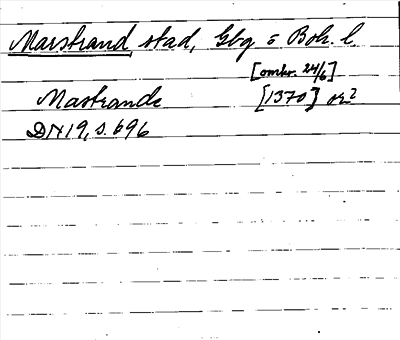 Marstrand stad, Gbg o Boh. l.
[omkr. 24/6]
Mastrande [1370] or2
DN 19, s. 696